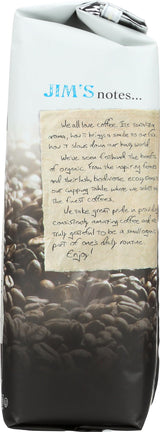 JIM'S notes...
We all love coffee. Its
aroma, how it brings a smile to our
how it slows down our busy world.
We've seen firsthand the benefits
of organic. From the inspiring farmers
and their lush, biodiverse ecosystems
our cupping table where we select
the finest coffees,
We take great pride in providing
consistently amazing coffee and
truly grateful to be a small
part of one's daily routine.
Enjoy!